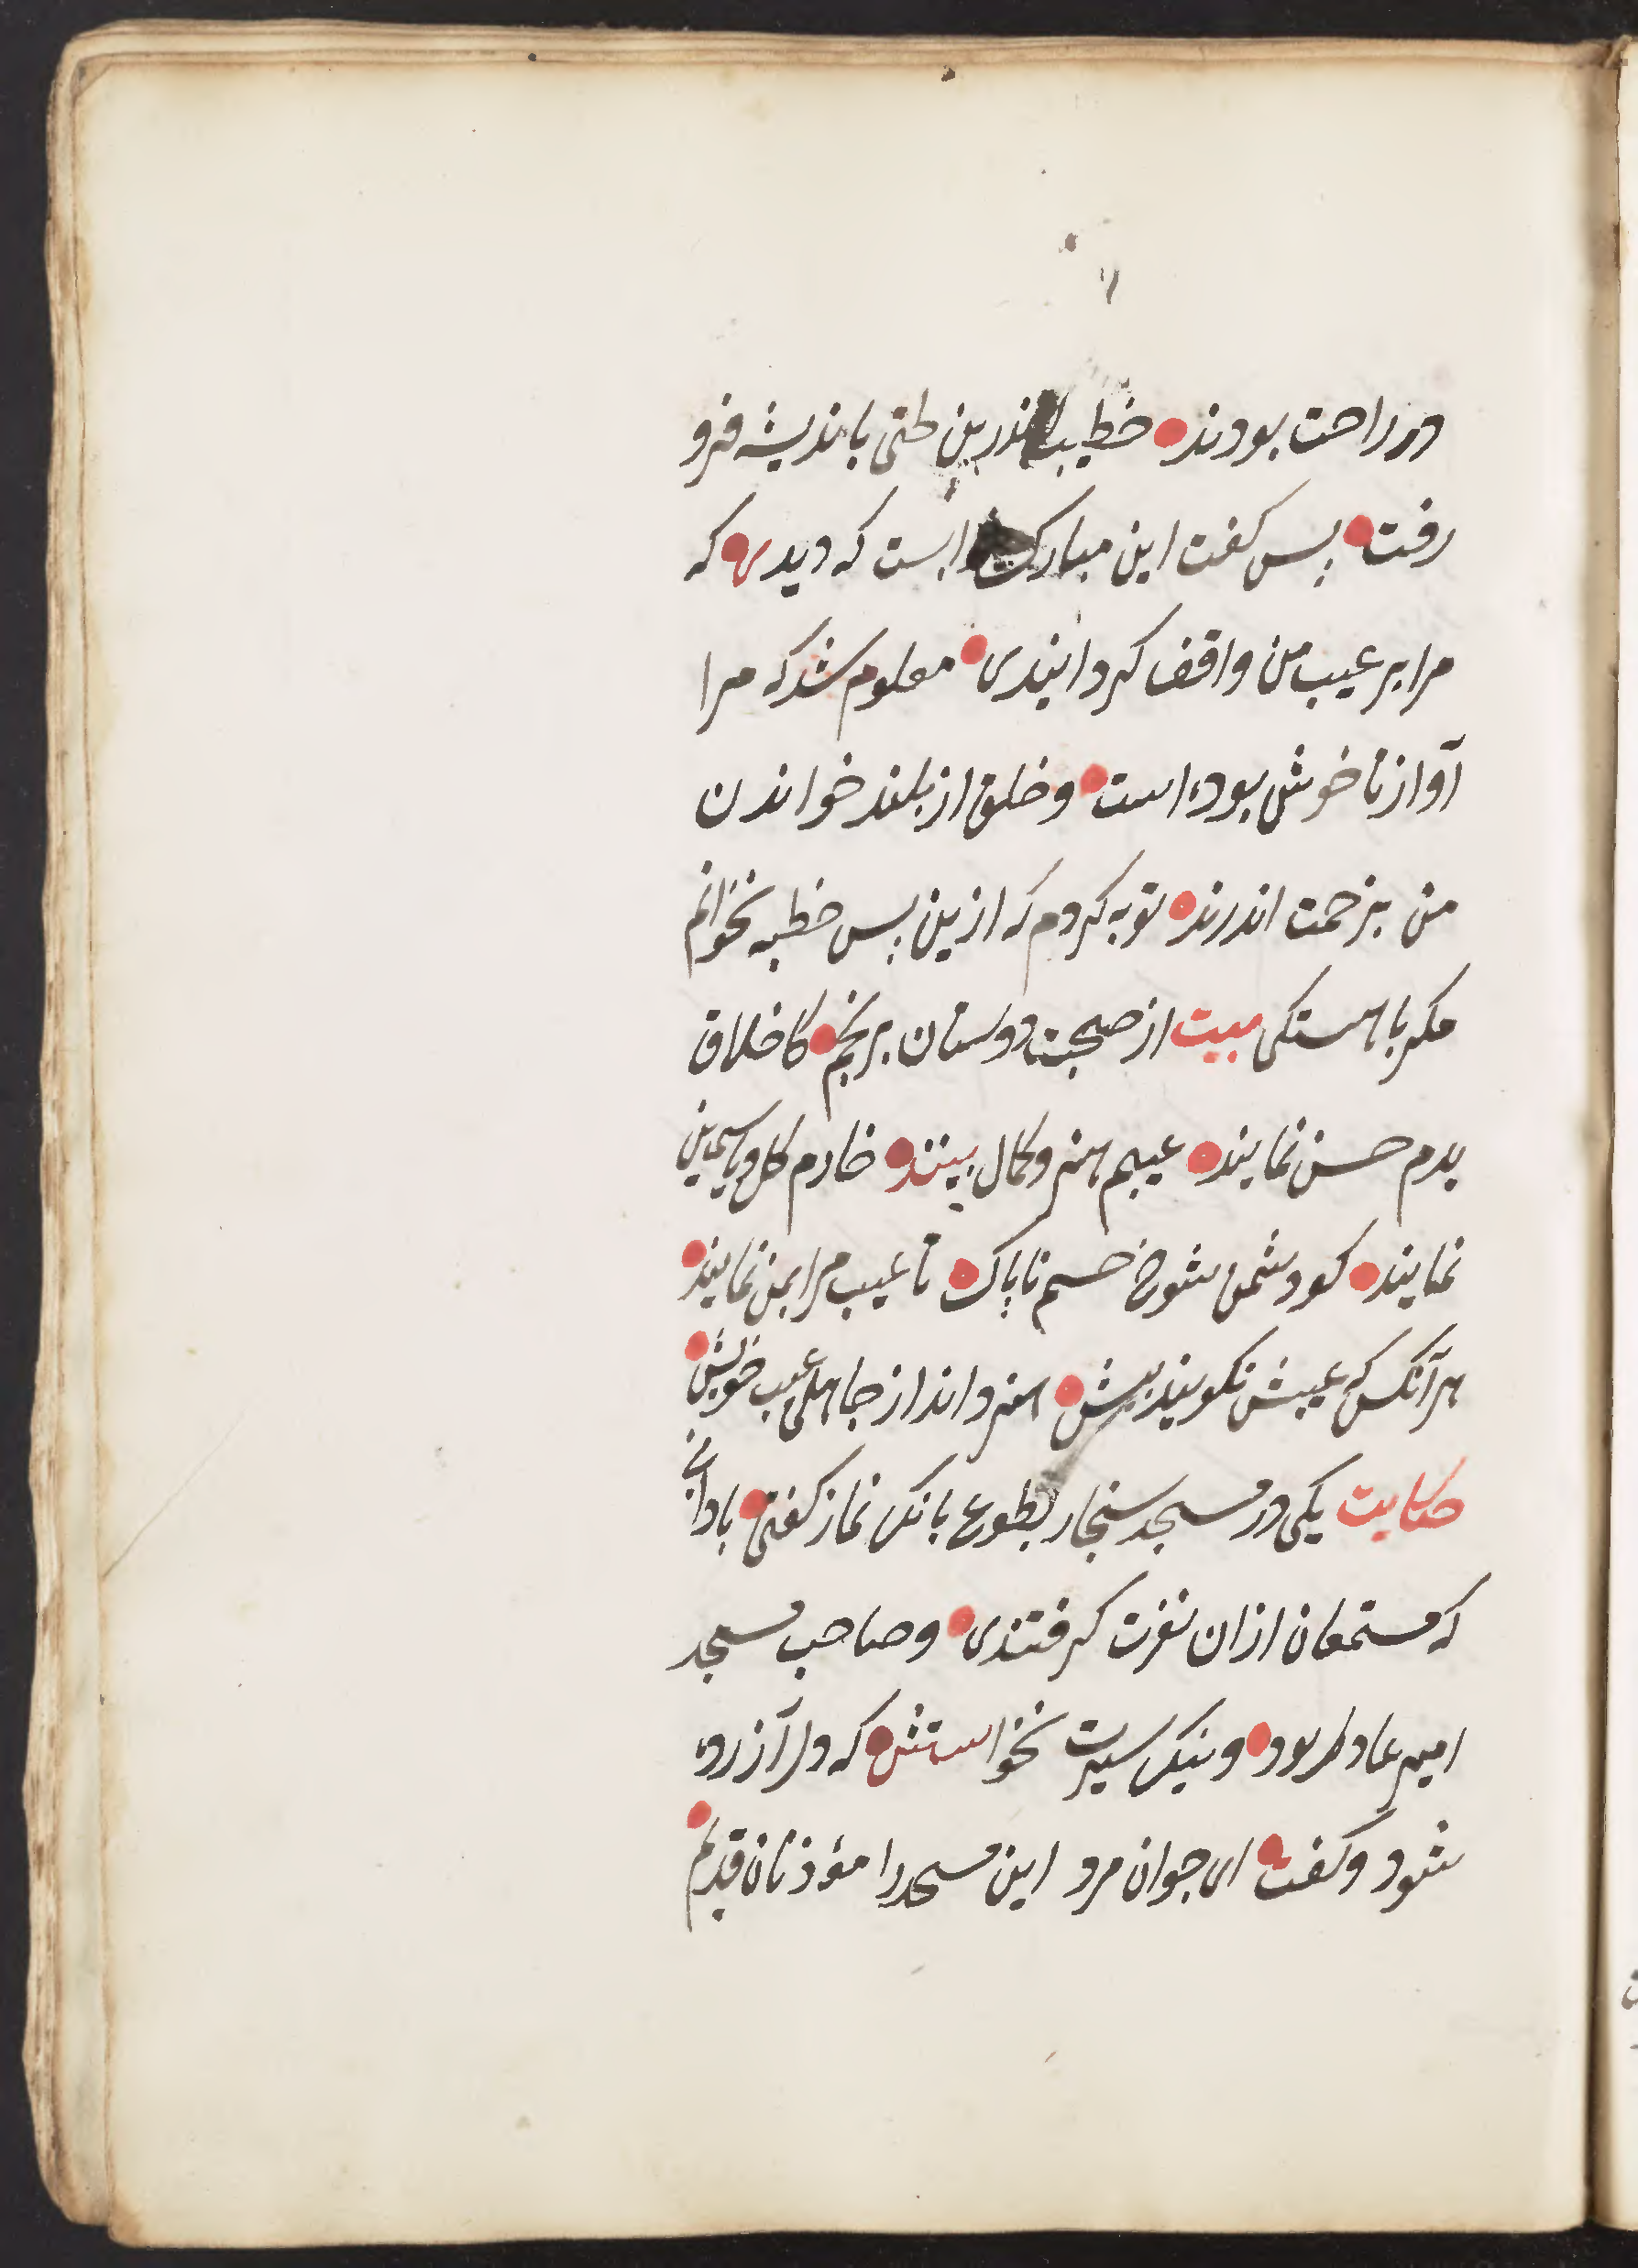 در راحت بودند خطیب اندرین لختی باندیشه فرو
رفت پس کفت این مبارک است که دیدی که
مرا بر عیب من واقف کردانیدی معلوم شد که مرا
آواز ناخوش بوده است و خلق از بلند خواندن
من بزحمت اندرند توبه کردم که ازین پس خطبه نخوانم
مکر باهستکی بیت از صحبت دوستان برنجم کاخلاق
بدم حسن نمایند عیبم هنر و کمال بینند خارم کل و یاسمین
نمایند کو دشمن شوخ خسم ناپاک تا عیب مرا بمن نمایند
هر آنکس که عیبش نکویند پیش هنر داند از جاهلی عیب خویش
حکایت یکی در مسجد سنجار بطوع بانک نماز کفتی باداي
که مستمعان ازان نفرت کرفتندی و صاحب مسجد
امیر عادل بود و نیک سیرت نخواستش که دل آزرده
شود و کفت ای جوان مرد این مسجد را مؤذنان قدیم